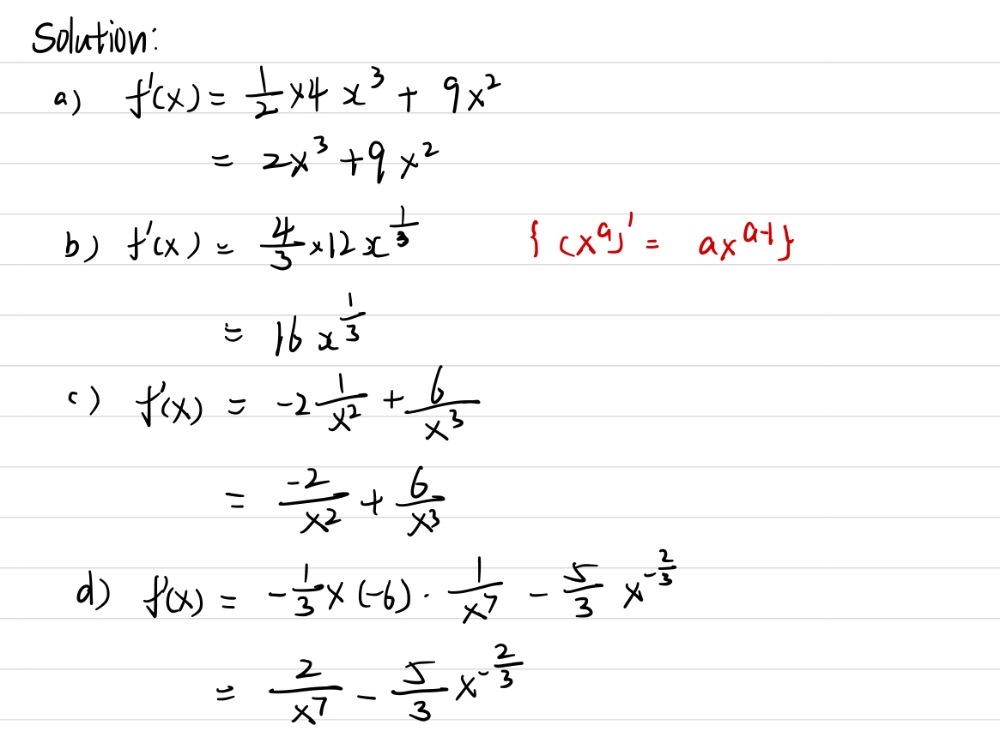 Solution:
a) f'(x) = 1/2 × 4 x³ + 9x²
= 2x³ + 9x²
b) f'(x) = 4/3 × 12 x^(1/3) { (x^a)' = ax^(a-1) }
= 16 x^(1/3)
c) f'(x) = -2 1/x² + 6/x³
= -2/x² + 6/x³
d) f'(x) = -1/3 × (-6) · 1/x⁷ - 5/3 x^(-2/3)
= 2/x⁷ - 5/3 x^(-2/3)